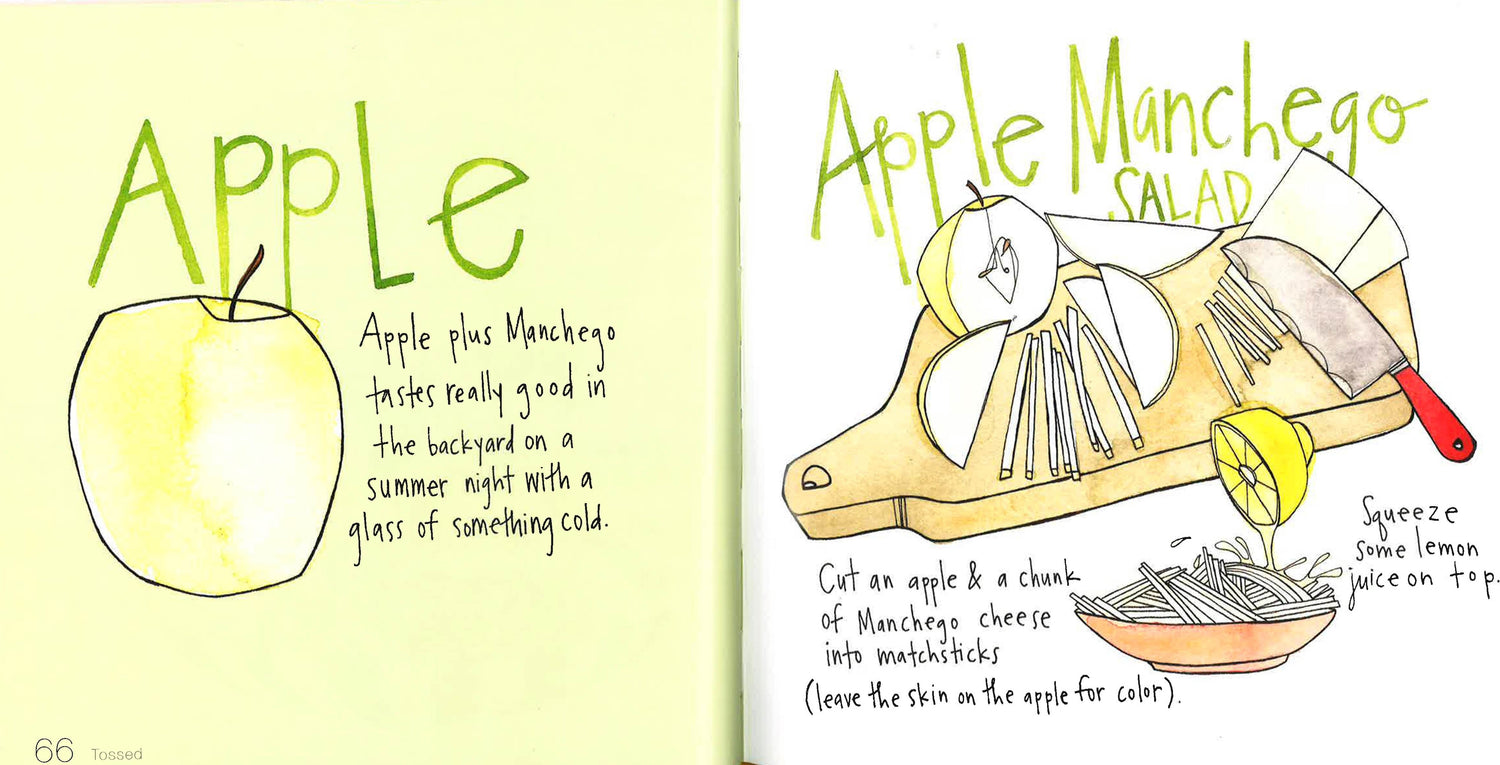 Apple
Apple plus Manchego
tastes really good in
the backyard on a
summer night with a
glass of something cold.
66 Tossed
Apple Manchego
SALAD
Cut an apple & a chunk
of Manchego cheese
into matchsticks
(leave the skin on the apple for color).
Squeeze
some lemon
juice on top.